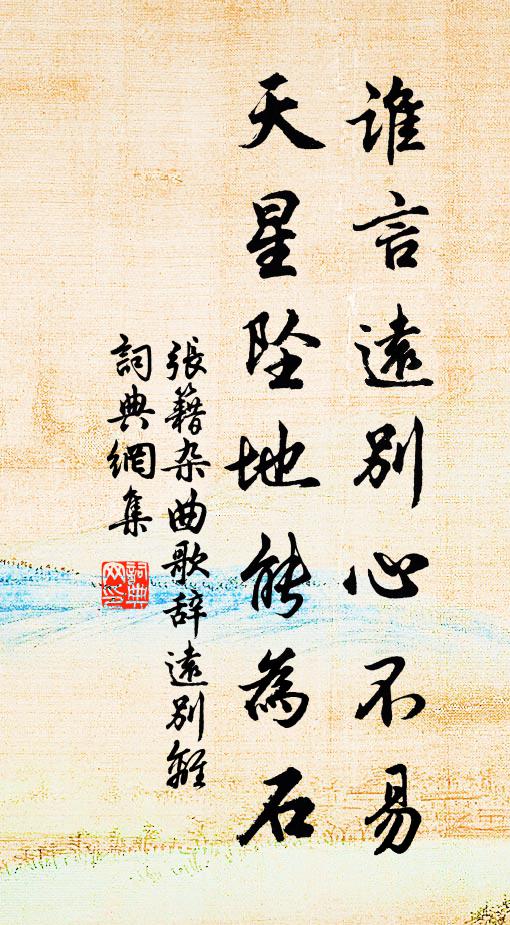 誰言遠別心不易
天星坠地能為石
張籍杂曲歌辞遠別離
詞典網集
詞典网印